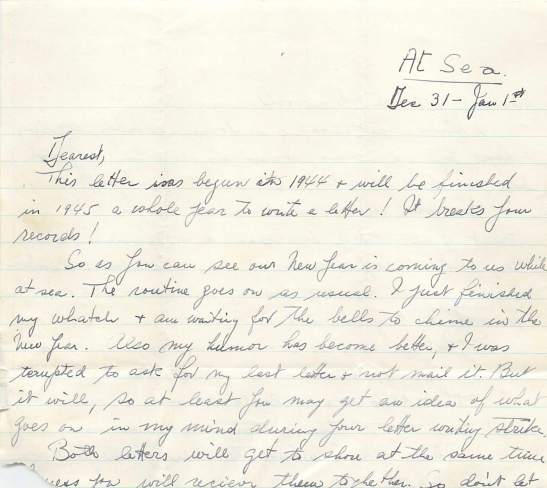 At Sea.
Dec 31 - Jan 1st
Dearest,
This letter was begun in 1944 + will be finished
in 1945 a whole year to write a letter! It breaks your
records!
So as you can see our New Year is coming to us while
at sea. The routine goes on as usual. I just finished
my whatch + am waiting for the bells to chime in the
New Year. Also my humor has become better, + I was
tempted to ask for my last letter + not mail it. But
it will, so at least you may get an idea of what
goes on in my mind during your letter writing strike.
Both letters will get to shore at the same time
you will recieve them together. So don't let